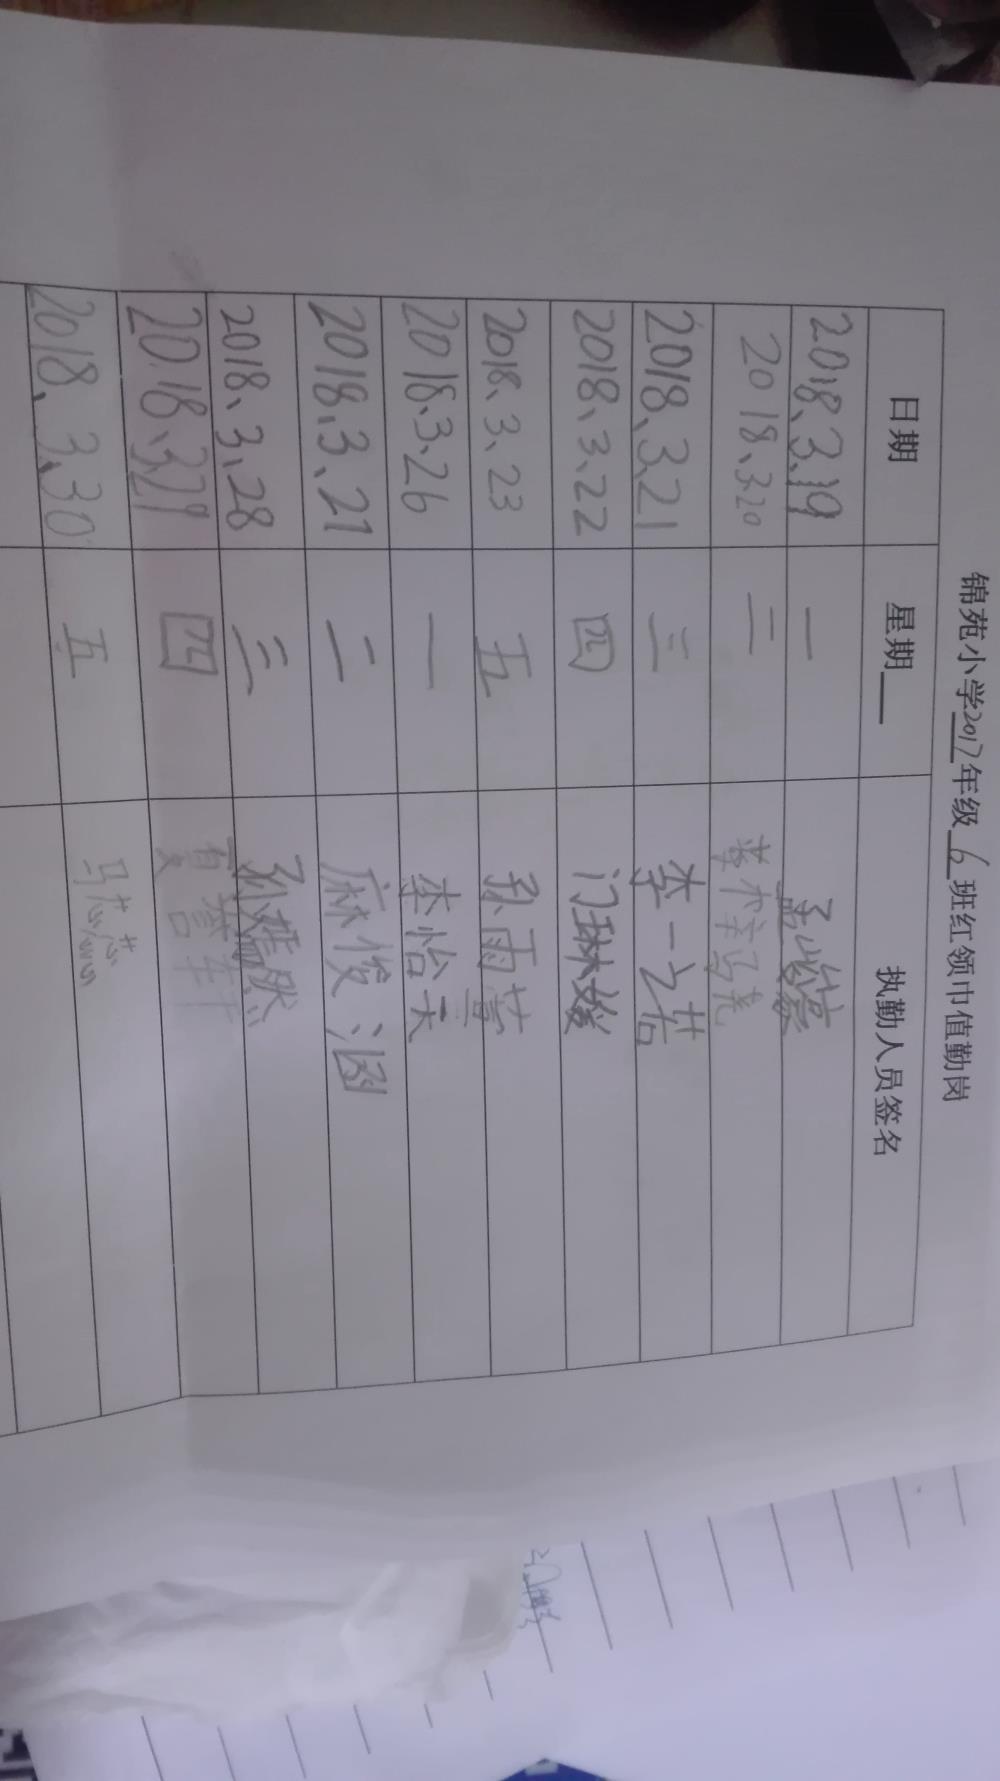 锦苑小学2017年级6班红领巾值勤岗
日期 星期 执勤人员签名
2018、3、19 一 孟
2018、3、20 二
2018、3、21 三 李一诺
2018、3、22 四 门琳媛
2018、3、23 五 孙雨萱
2018、3、26 一 李怡天
2018、3、21 二 麻俊涵
2018、3、28 三 孙嫣然
2018、3、29 四 夏
2018、3、30 五 马芯芯